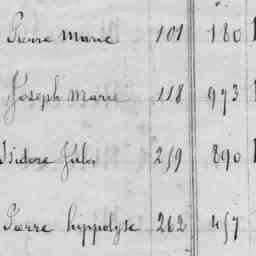 Pierre Marie 101 180
Joseph Marie 118 973
Isidore Jules 259 890
Pierre hippolyte 262 457